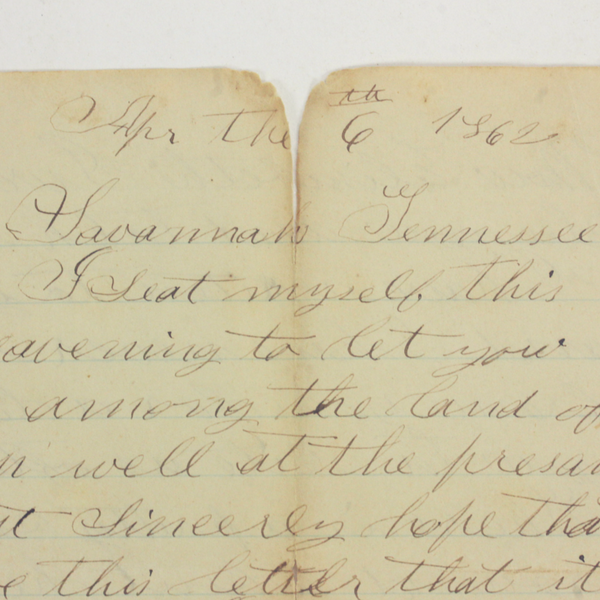 Apr the 6th 1862
Savannah Tennessee
I Seat myself this
eavening to let you
among the land of
well at the presan
Sincerely hope tha
this letter that it